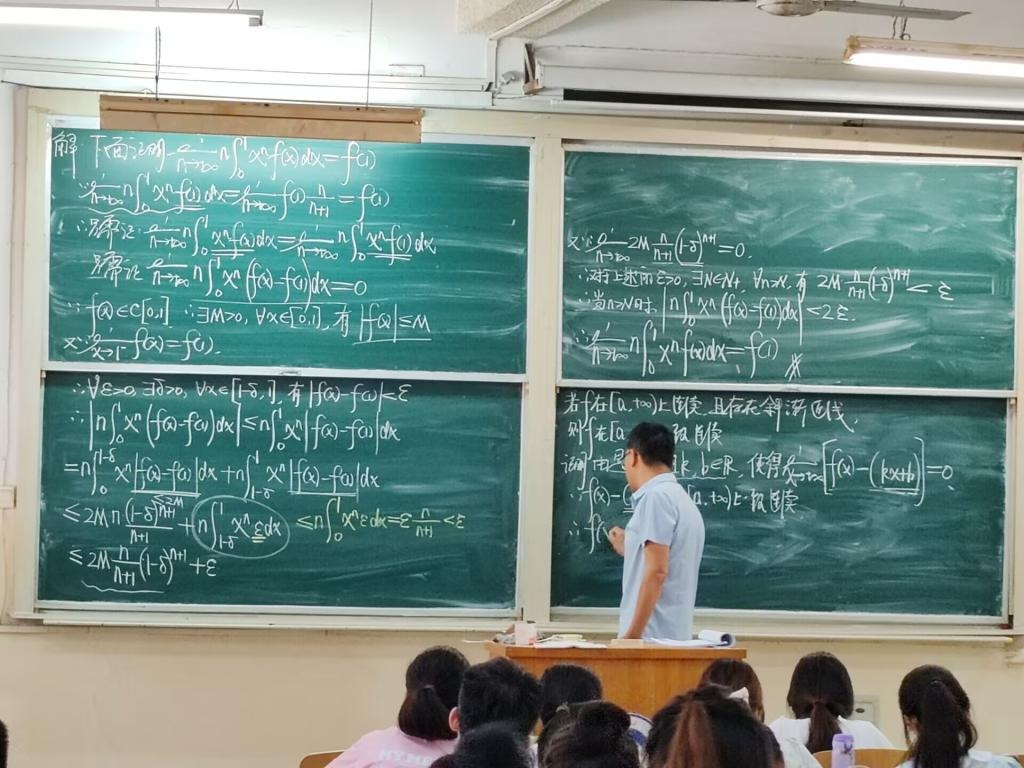 解 下面证明 lim_{n→∞} n∫_0^1 x^n f(x)dx = f(1)
∵ lim_{n→∞} n∫_0^1 x^n f(1)dx = lim_{n→∞} f(1) n/(n+1) = f(1)
∴ 只需证 lim_{n→∞} n∫_0^1 x^n f(x)dx = lim_{n→∞} n∫_0^1 x^n f(1)dx
只需证 lim_{n→∞} n∫_0^1 x^n (f(x)-f(1))dx = 0
∵ f(x)∈C[0,1] ∴ ∃M>0, ∀x∈[0,1], 有 |f(x)| ≤ M
又∵ lim_{x→1^-} f(x) = f(1).
∴ ∀ε>0, ∃δ>0, ∀x∈[1-δ,1], 有 |f(x)-f(1)| < ε
∴ |n∫_0^1 x^n (f(x)-f(1))dx| ≤ n∫_0^1 x^n |f(x)-f(1)|dx
= n∫_0^{1-δ} x^n |f(x)-f(1)|dx + n∫_{1-δ}^1 x^n |f(x)-f(1)|dx
≤2M
≤ 2M n (1-δ)^{n+1}/(n+1) + n∫_{1-δ}^1 x^n ε dx ≤ n∫_0^1 x^n ε dx = ε n/(n+1) < ε
≤ 2M n/(n+1) (1-δ)^{n+1} + ε
又∵ lim_{n→∞} 2M n/(n+1) (1-δ)^{n+1} = 0.
∴ 对于上述的 ε>0, ∃N∈N+, ∀n>N, 有 2M n/(n+1) (1-δ)^{n+1} < ε
∴ 当n>N时, |n∫_0^1 x^n (f(x)-f(1))dx| < 2ε.
∴ lim_{n→∞} n∫_0^1 x^n f(x)dx = f(1) #
若f在[a,+∞)上连续, 且存在斜渐近线,
则f在[a, 致连续
证明 由 k, b∈R, 使得 lim_{x→+∞} [f(x)-(kx+b)] = 0.
∴ f(x)-( [a,+∞)上一致连续
∴ f(x
MYM